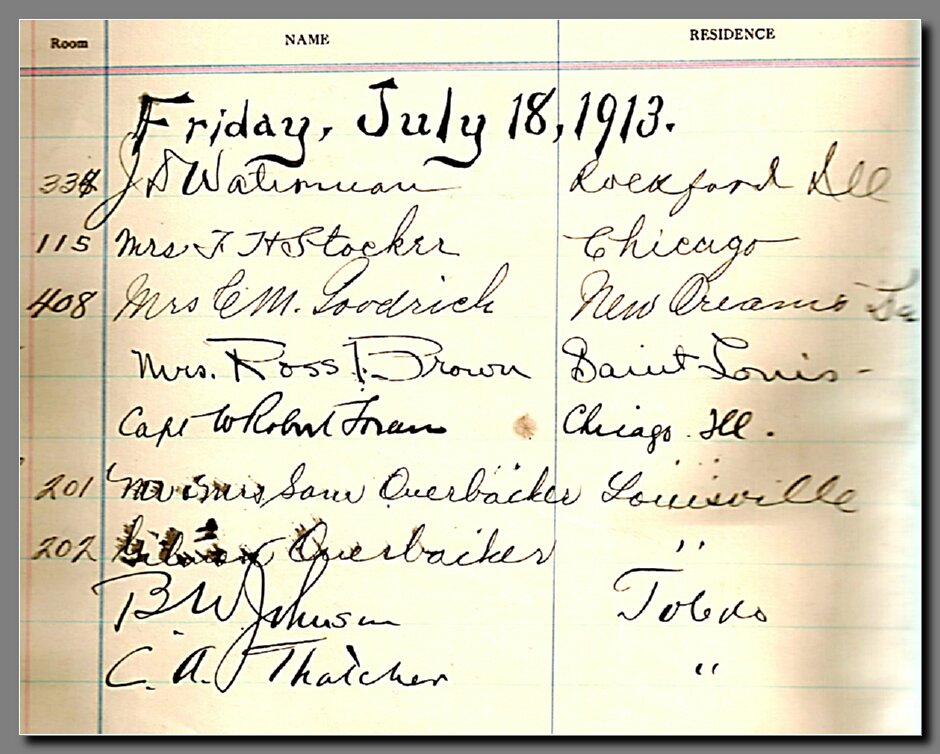 Room NAME RESIDENCE
Friday, July 18, 1913.
334 J D Waterman Rockford Ill
115 Mrs F H Stocker Chicago
408 Mrs C M. Goodrich New Oreans La
Mrs. Ross I. Brown Saint Louis-
Capt W Robert Foran Chicago. Ill.
201 Mr & Mrs Sam Overbacker Louisville
202 Overbacker "
B W Johnson Toledo
C. A. Thatcher "